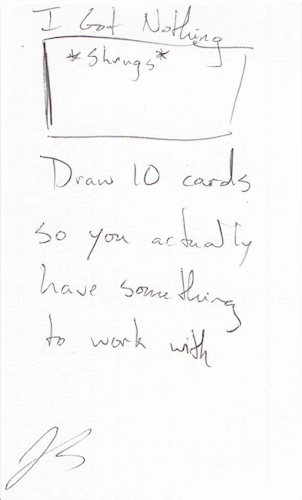 I Got Nothing
*Shrugs*
Draw 10 cards
so you actually
have something
to work with